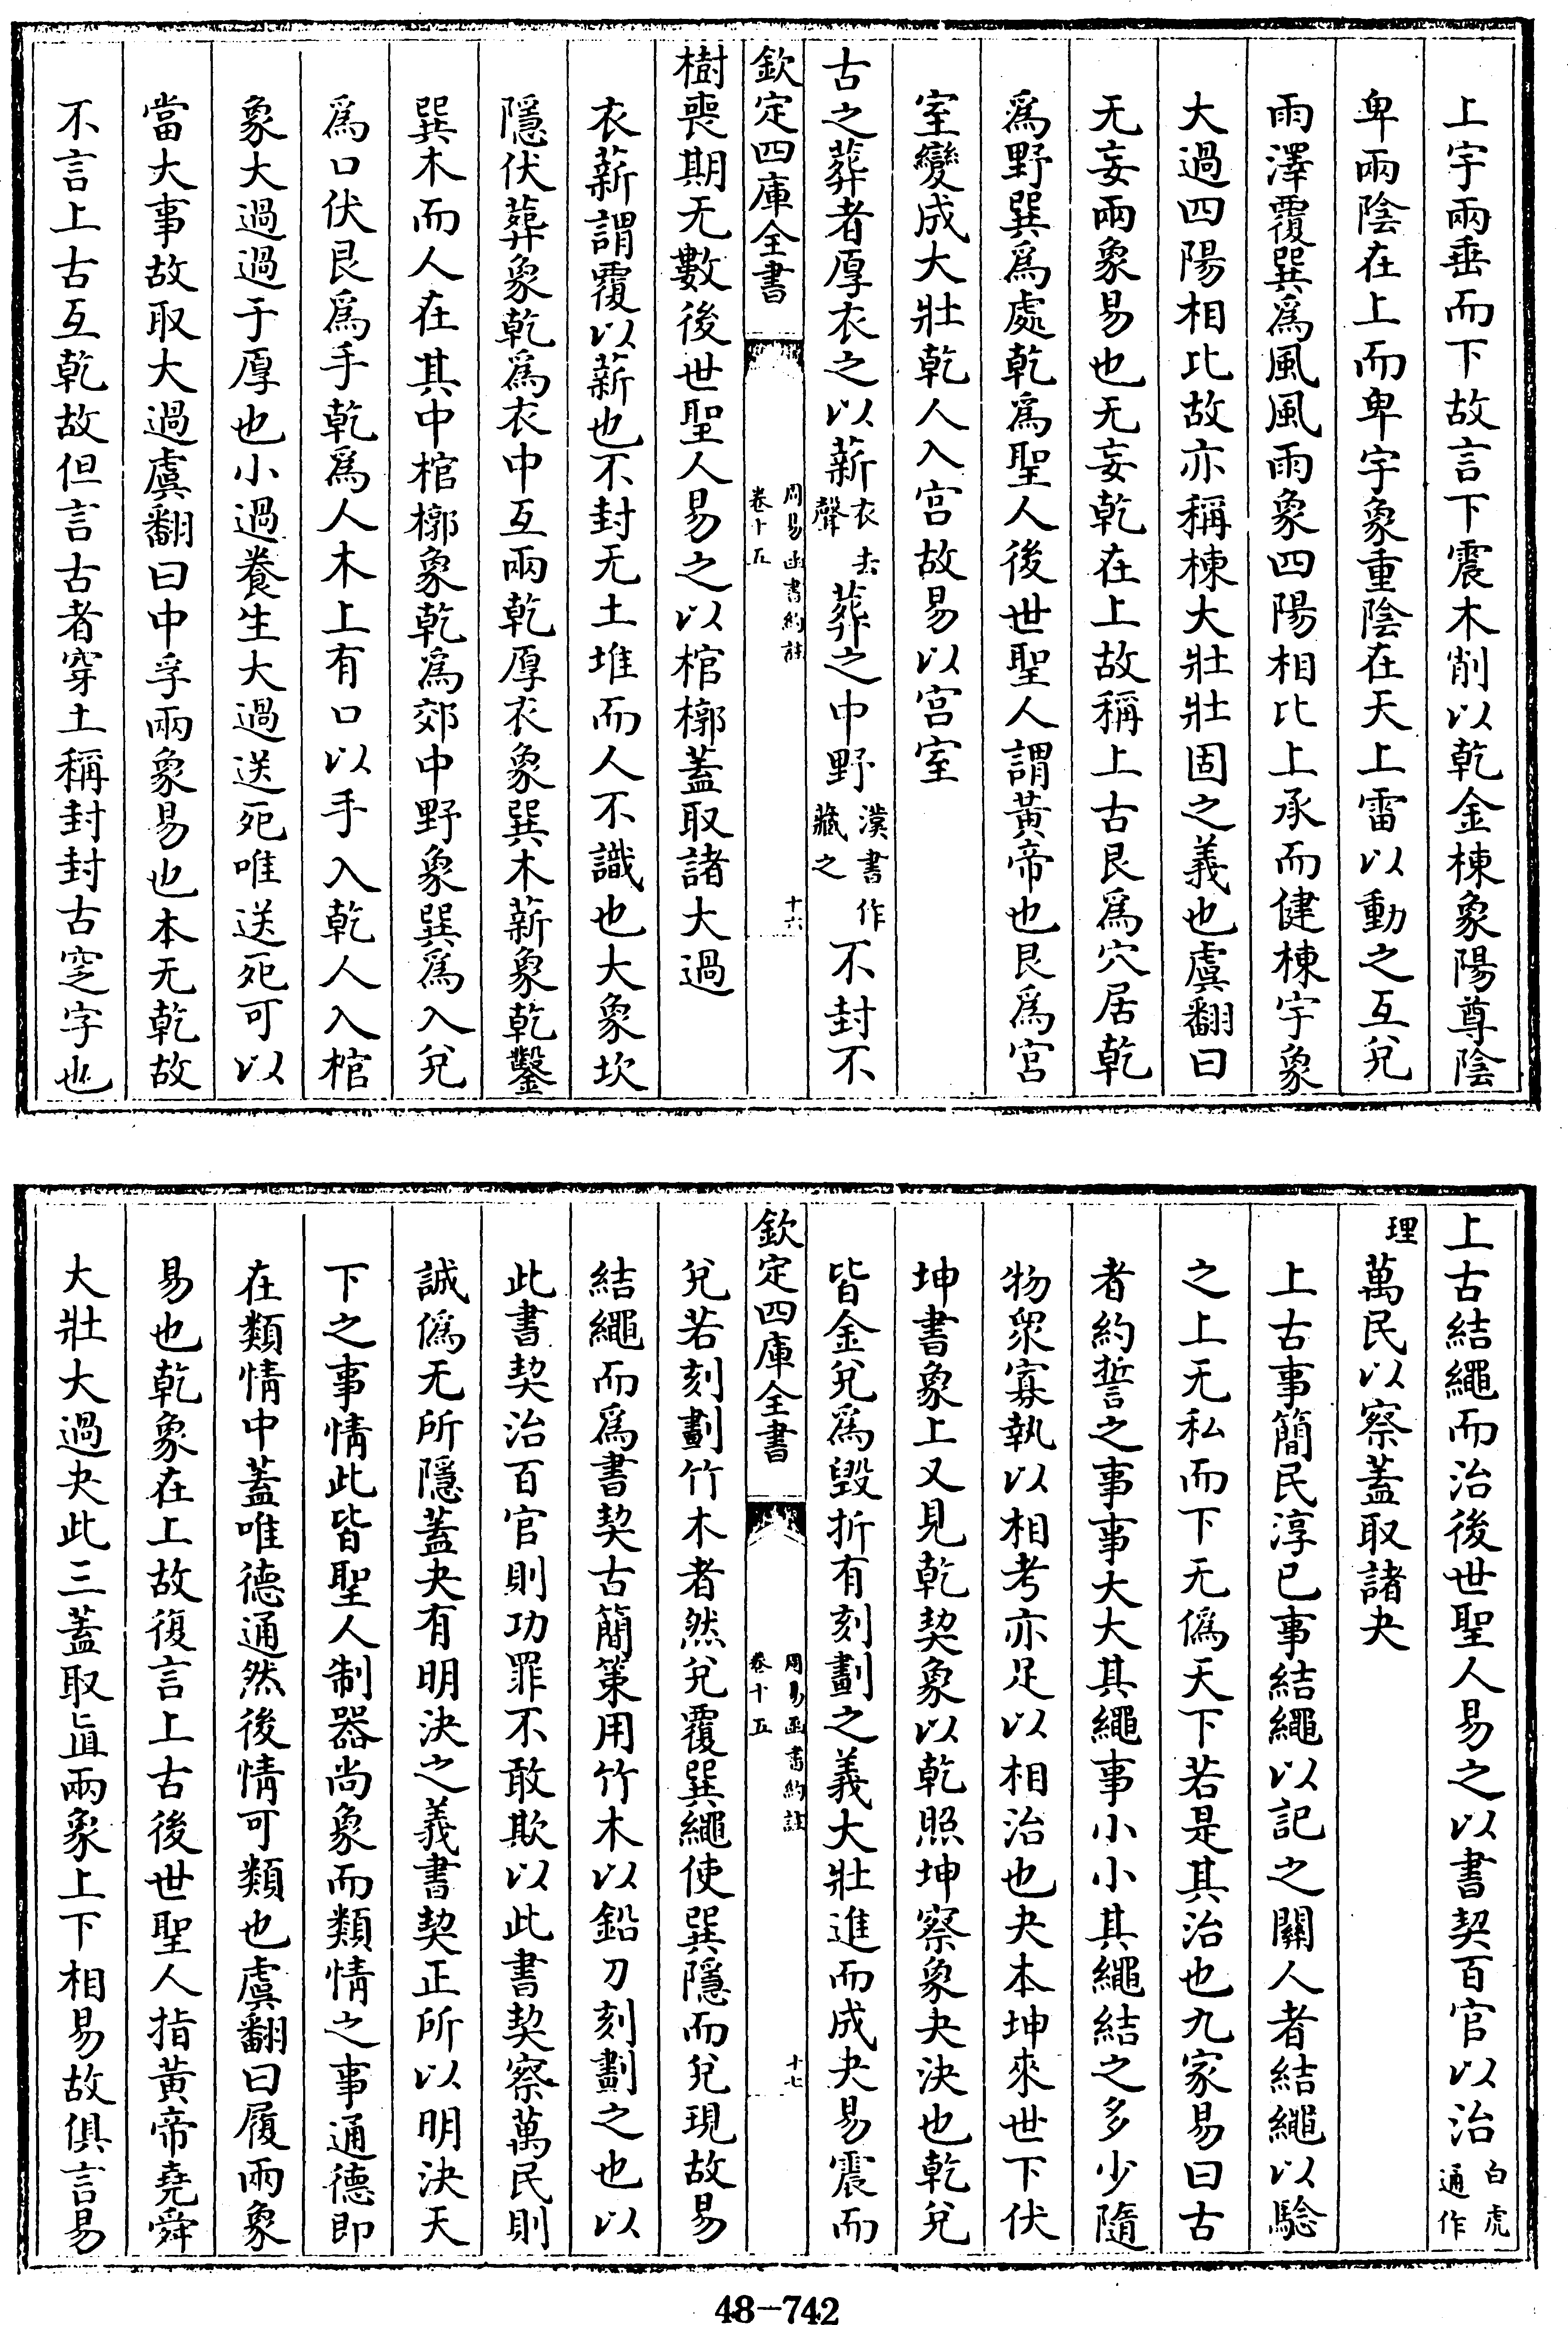 上宇兩垂而下故言下震木削以乾金棟象陽尊陰
卑兩陰在上而卑宇象重陰在天上雷以動之互兌
雨澤覆巽爲風風雨象四陽相比上承而健棟宇象
大過四陽相比故亦稱棟大壯壯固之義也虞翻曰
无妄兩象易也无妄乾在上故稱上古艮爲穴居乾
爲野巽爲處乾爲聖人後世聖人謂黃帝也艮爲宮
室變成大壯乾人入宮故易以宮室
古之葬者厚衣之以薪衣去聲葬之中野漢書作藏之不封不
欽定四庫全書 周易函書約註 卷十五 十六
樹喪期无數後世聖人易之以棺槨蓋取諸大過
衣薪謂覆以薪也不封无土堆而人不識也大象坎
隱伏葬象乾爲衣中互兩乾厚衣象巽木薪象乾鑿
巽木而人在其中棺槨象乾爲郊中野象巽爲入兌
爲口伏艮爲手乾爲人木上有口以手入乾人入棺
象大過過于厚也小過養生大過送死唯送死可以
當大事故取大過虞翻曰中孚兩象易也本无乾故
不言上古互乾故但言古者穿土稱封封古窆字也
上古結繩而治後世聖人易之以書契百官以治白虎通作
理萬民以察蓋取諸夬
上古事簡民淳已事結繩以記之關人者結繩以驗
之上无私而下无僞天下若是其治也九家易曰古
者約誓之事事大大其繩事小小其繩結之多少隨
物眾寡執以相考亦足以相治也夬本坤來世下伏
坤書象上又見乾契象以乾照坤察象夬決也乾兌
皆金兌爲毀折有刻劃之義大壯進而成夬易震而
欽定四庫全書 周易函書約註 卷十五 十七
兌若刻劃竹木者然兌覆巽繩使巽隱而兌現故易
結繩而爲書契古簡策用竹木以鉛刀刻劃之也以
此書契治百官則功罪不敢欺以此書契察萬民則
誠僞无所隱蓋夬有明決之義書契正所以明決天
下之事情此皆聖人制器尚象而類情之事通德即
在類情中蓋唯德通然後情可類也虞翻曰履兩象
易也乾象在上故復言上古後世聖人指黃帝堯舜
大壯大過夬此三蓋取直兩象上下相易故俱言易
48-742